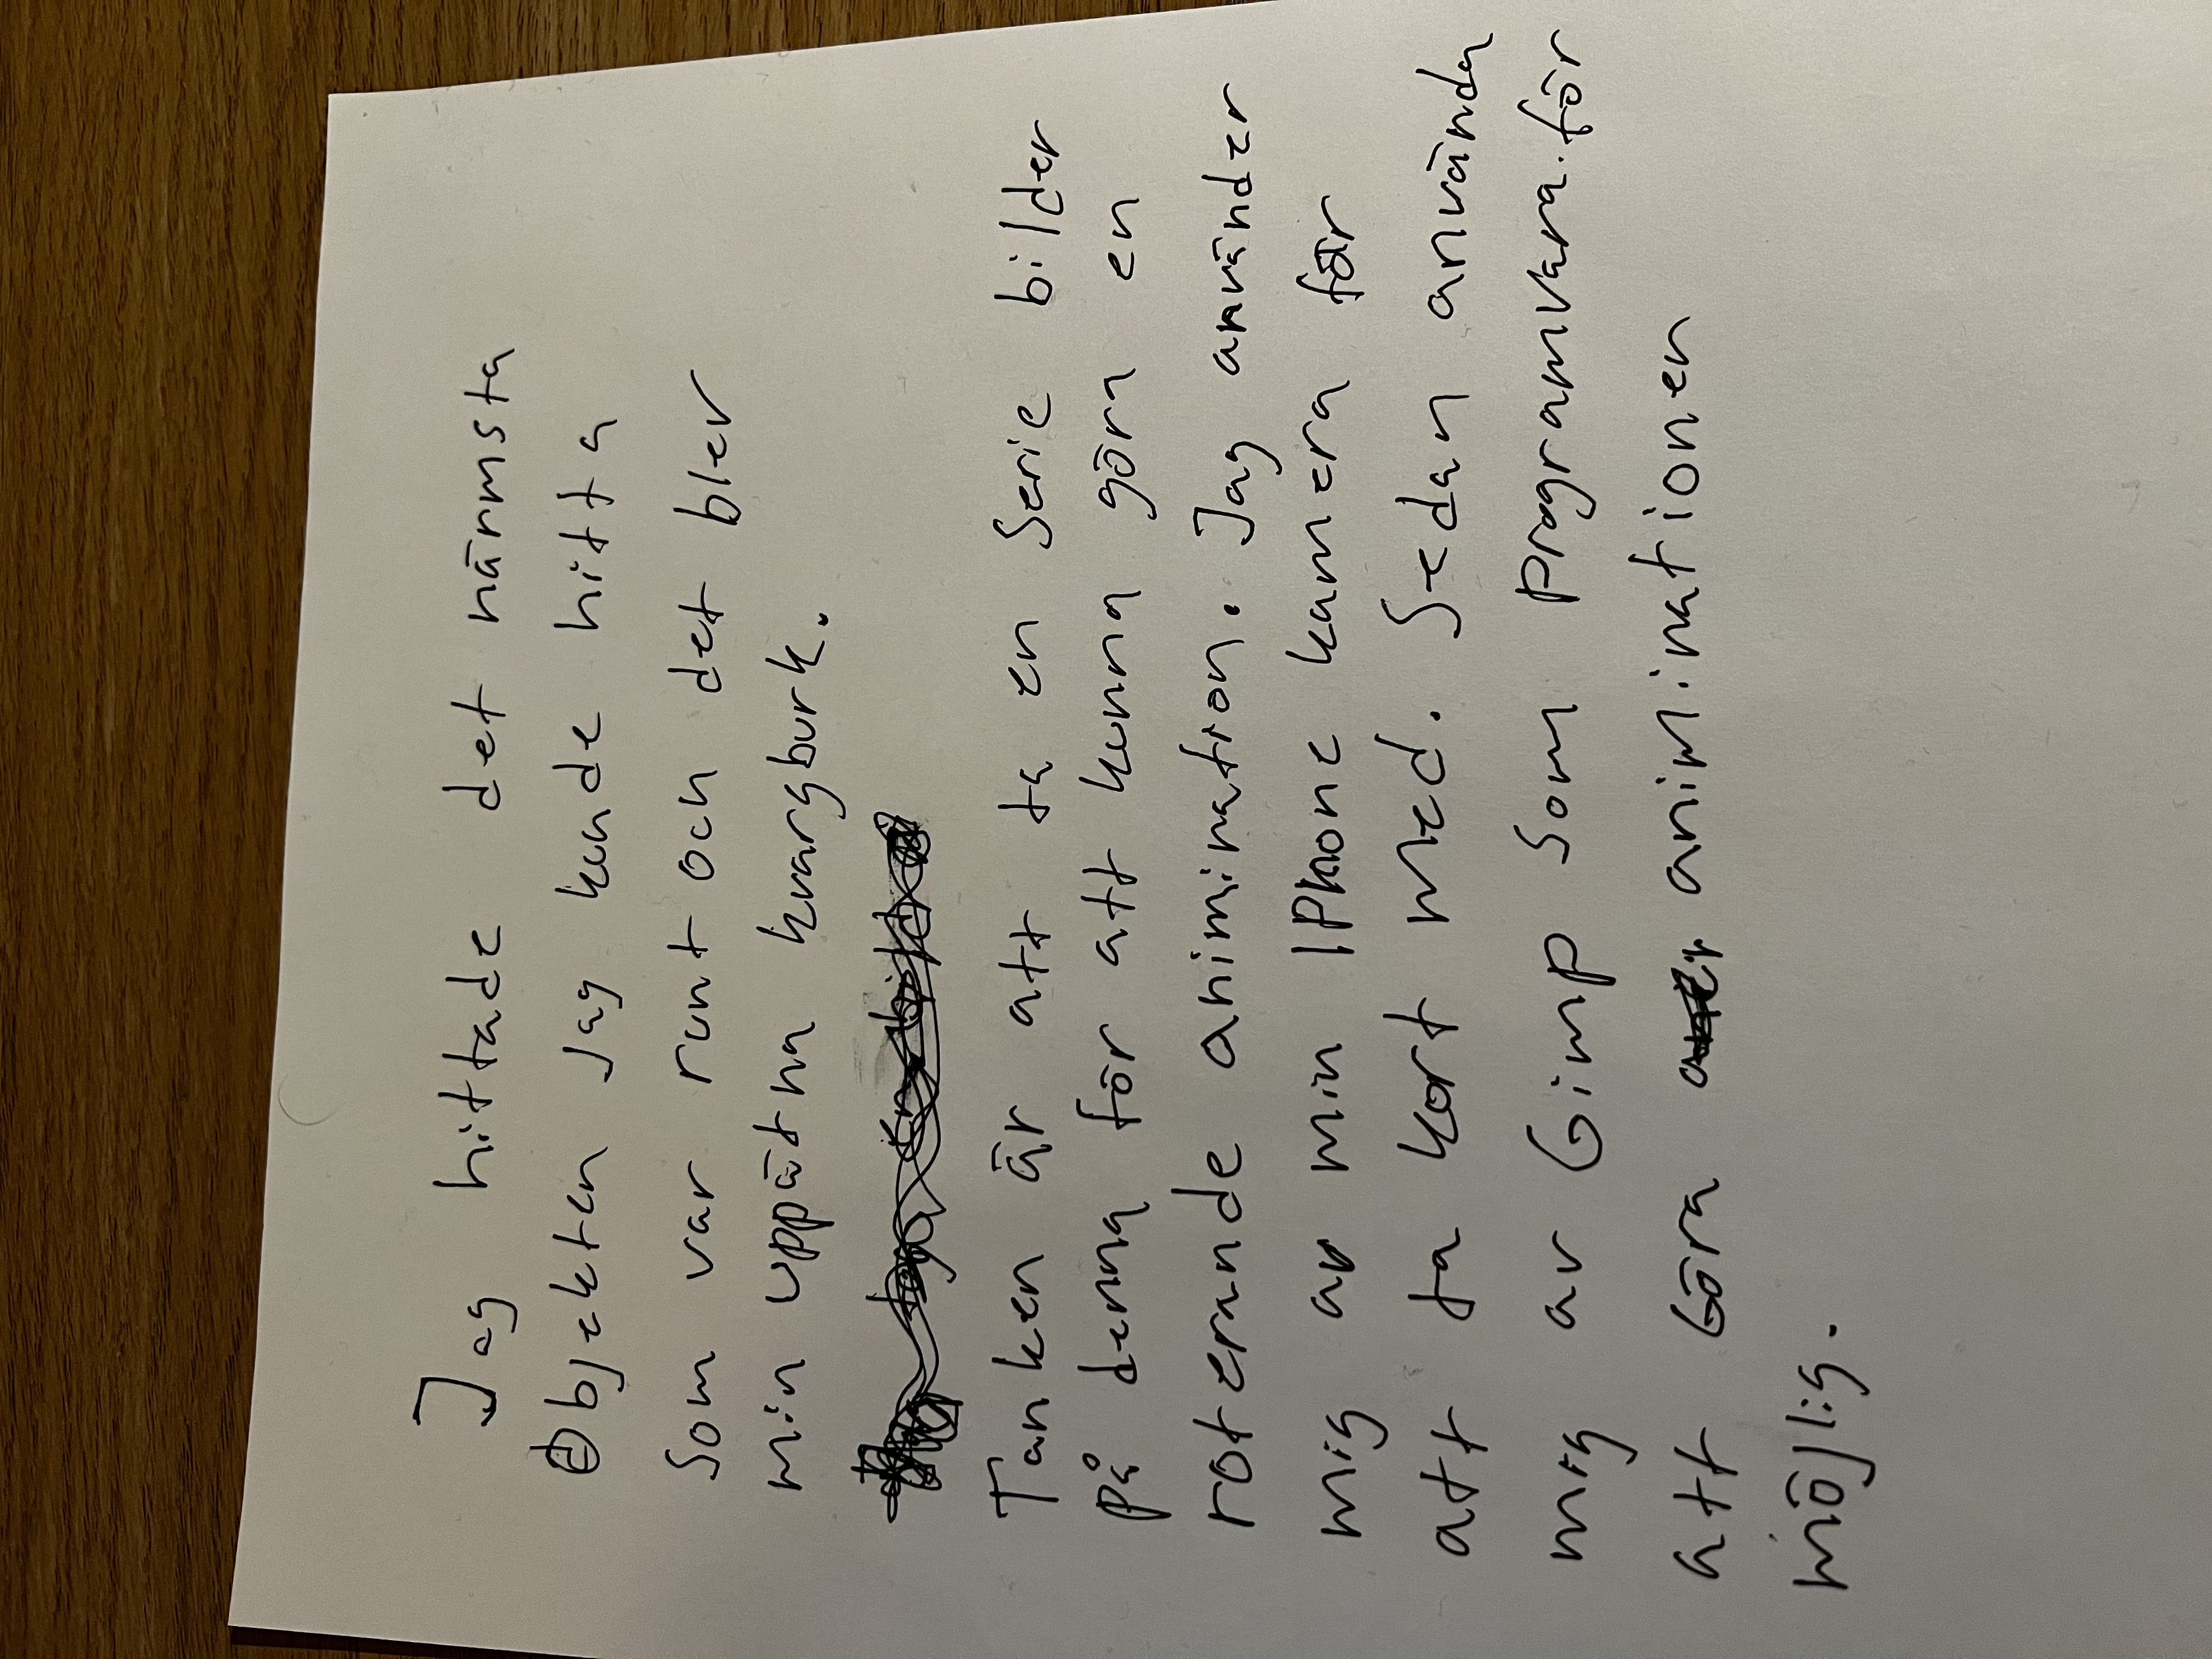 Jag hittade det närmsta
Objekten jag kunde hitta
som var runt och det blev
min uppätna kvargburk.
Tanken är att ta en serie bilder
på denna för att kunna göra en
roterande animination. Jag använder
mig av min IPhone kamera för
att ta kort med. Sedan använda
mig av Gimp som programvara för
att göra animinationen
möjlig.